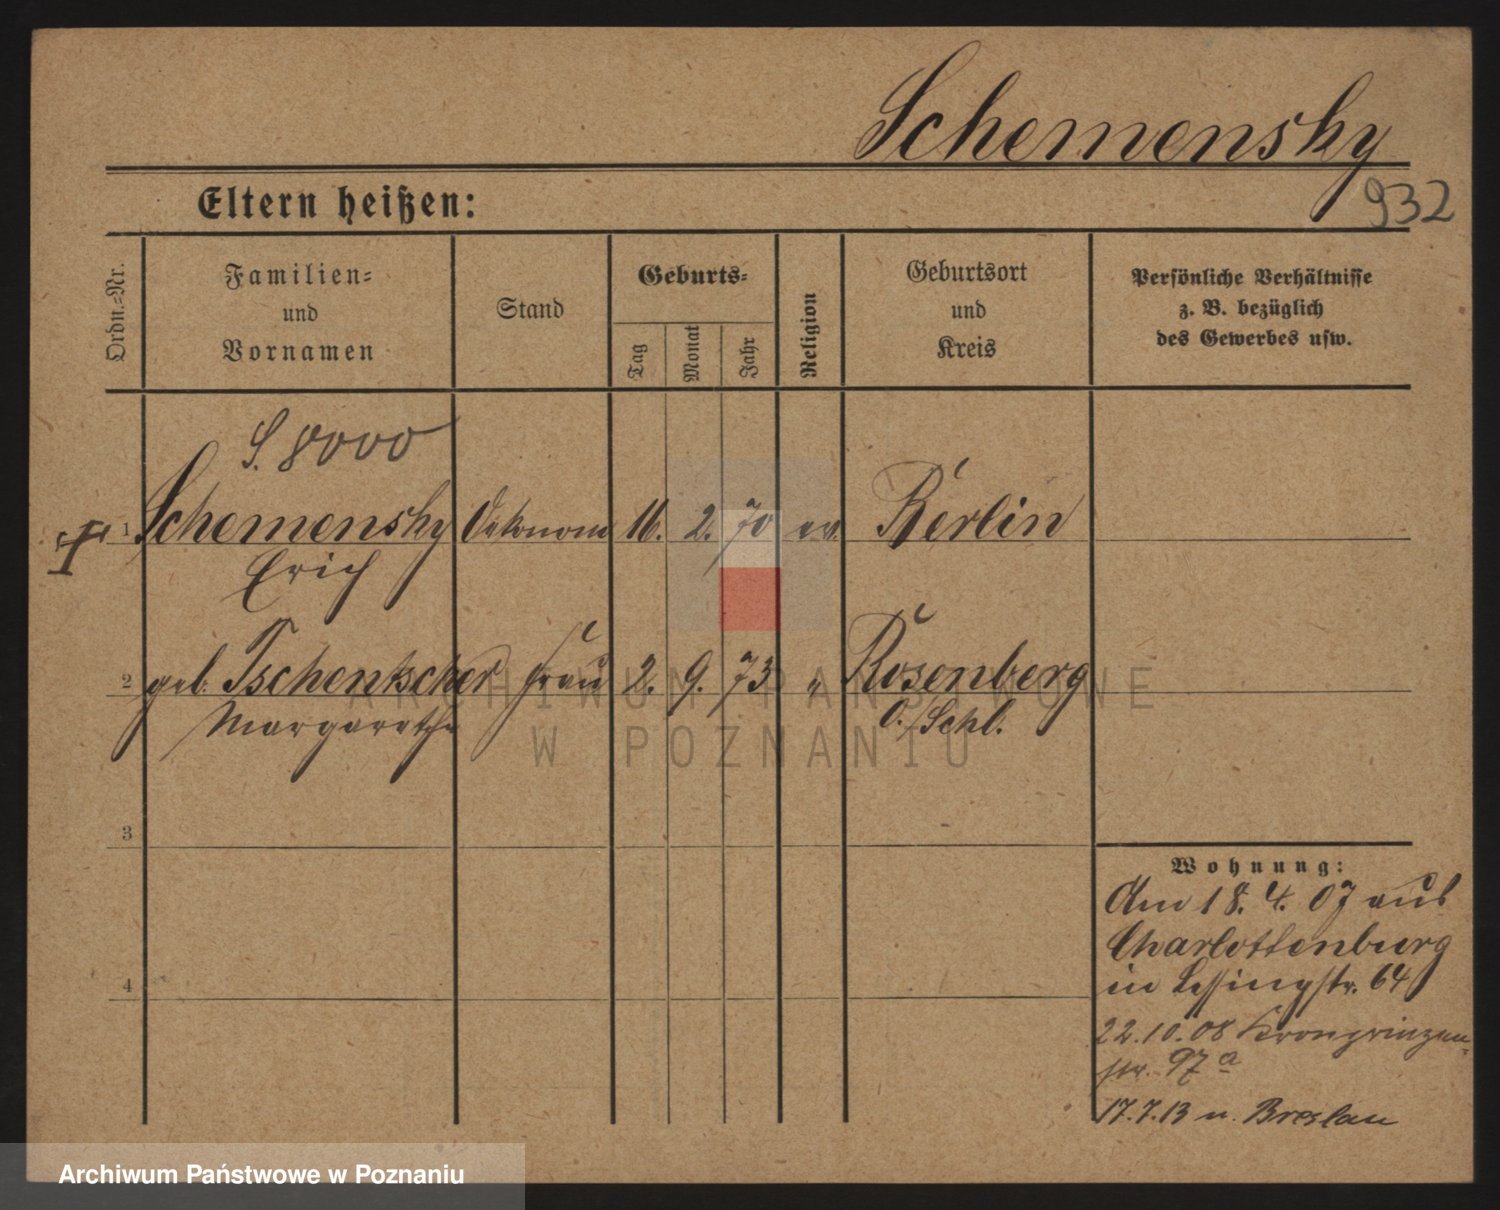 Schemensky
932
Eltern heißen:
Ordn.=Nr.
Familien=
und
Vornamen
Stand
Geburts=
Tag
Monat
Jahr
Religion
Geburtsort
und
Kreis
Persönliche Verhältnisse
z. B. bezüglich
des Gewerbes usw.
S. 8000
1 Schemensky Oekonom 16. 2. 70 ev. Berlin
Erich
2 geb. Tschentscher Frau 2. 9. 73 " Rosenberg
Margarethe O./Schl.
3
4
Wohnung:
Am 18. 4. 07 aus
Charlottenburg
in Lessingstr. 64
22.10.08 Kronprinzen=
str. 97a
17.7.13 n. Breslau
ARCHIWUM PAŃSTWOWE
W POZNANIU
Archiwum Państwowe w Poznaniu